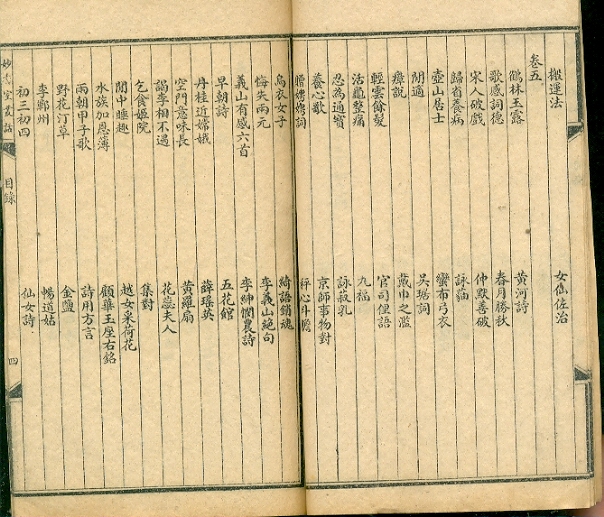 搬運法
女仙佐治
卷五
鶴林玉露
黃河詩
歌感詞德
春月勝秋
宋人破戲
仲默善破
歸省養病
詠貓
壺山居士
蠻布弓衣
閒適
吳琚詞
療說
戴巾之濫
輕雲餘髮
官司俚語
活彘整痛
九福
忍為通寶
詠菽乳
養心歌
京師事物對
詞
評心
烏衣女子
綺語銷魂
悔失兩元
李義山絕句
義山有感六首
李紳憫農詩
早朝詩
五花館
丹桂近嫦娥
薛瑤英
空門意味長
黃羅扇
謁李相不遇
花蕊夫人
乞食姬院
集對
閒中睡趣
越女采荷花
水族加恩簿
顧華玉座右銘
兩朝甲子歌
詩用方言
野花汀草
金鹽
李鄴州
暢道姑
初三初四
仙女詩
叢話
目錄
四